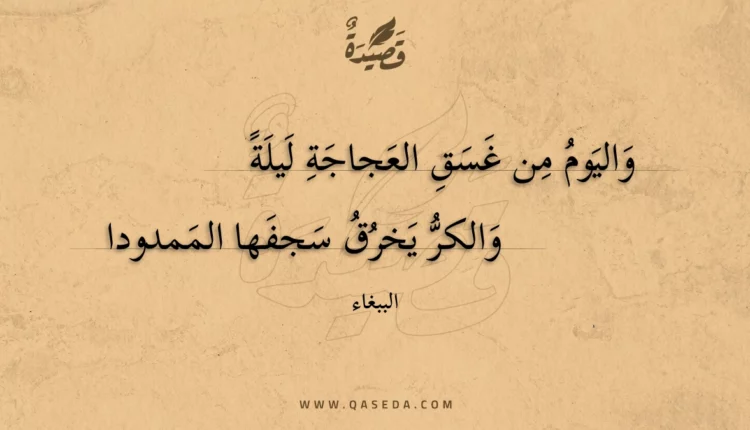 قَصِيدَةٌ
وَاليَومُ مِن غَسَقِ العَجاجَةِ لَيلَةً
وَالكرُّ يَخرُقُ سَجفَها المَمدودا
الببغاء
WWW.QASEDA.COM